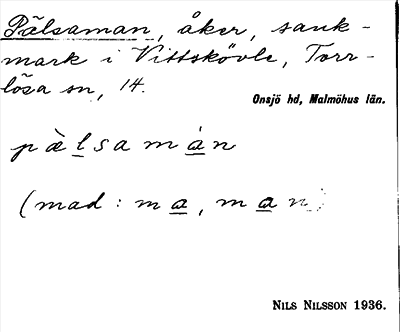 Pälsaman, åker, sank-
mark i Vittskövle, Torr-
lösa sn, 14.
Onsjö hd, Malmöhus län.
pàlsamán
(mad: ma, man)
NILS NILSSON 1936.